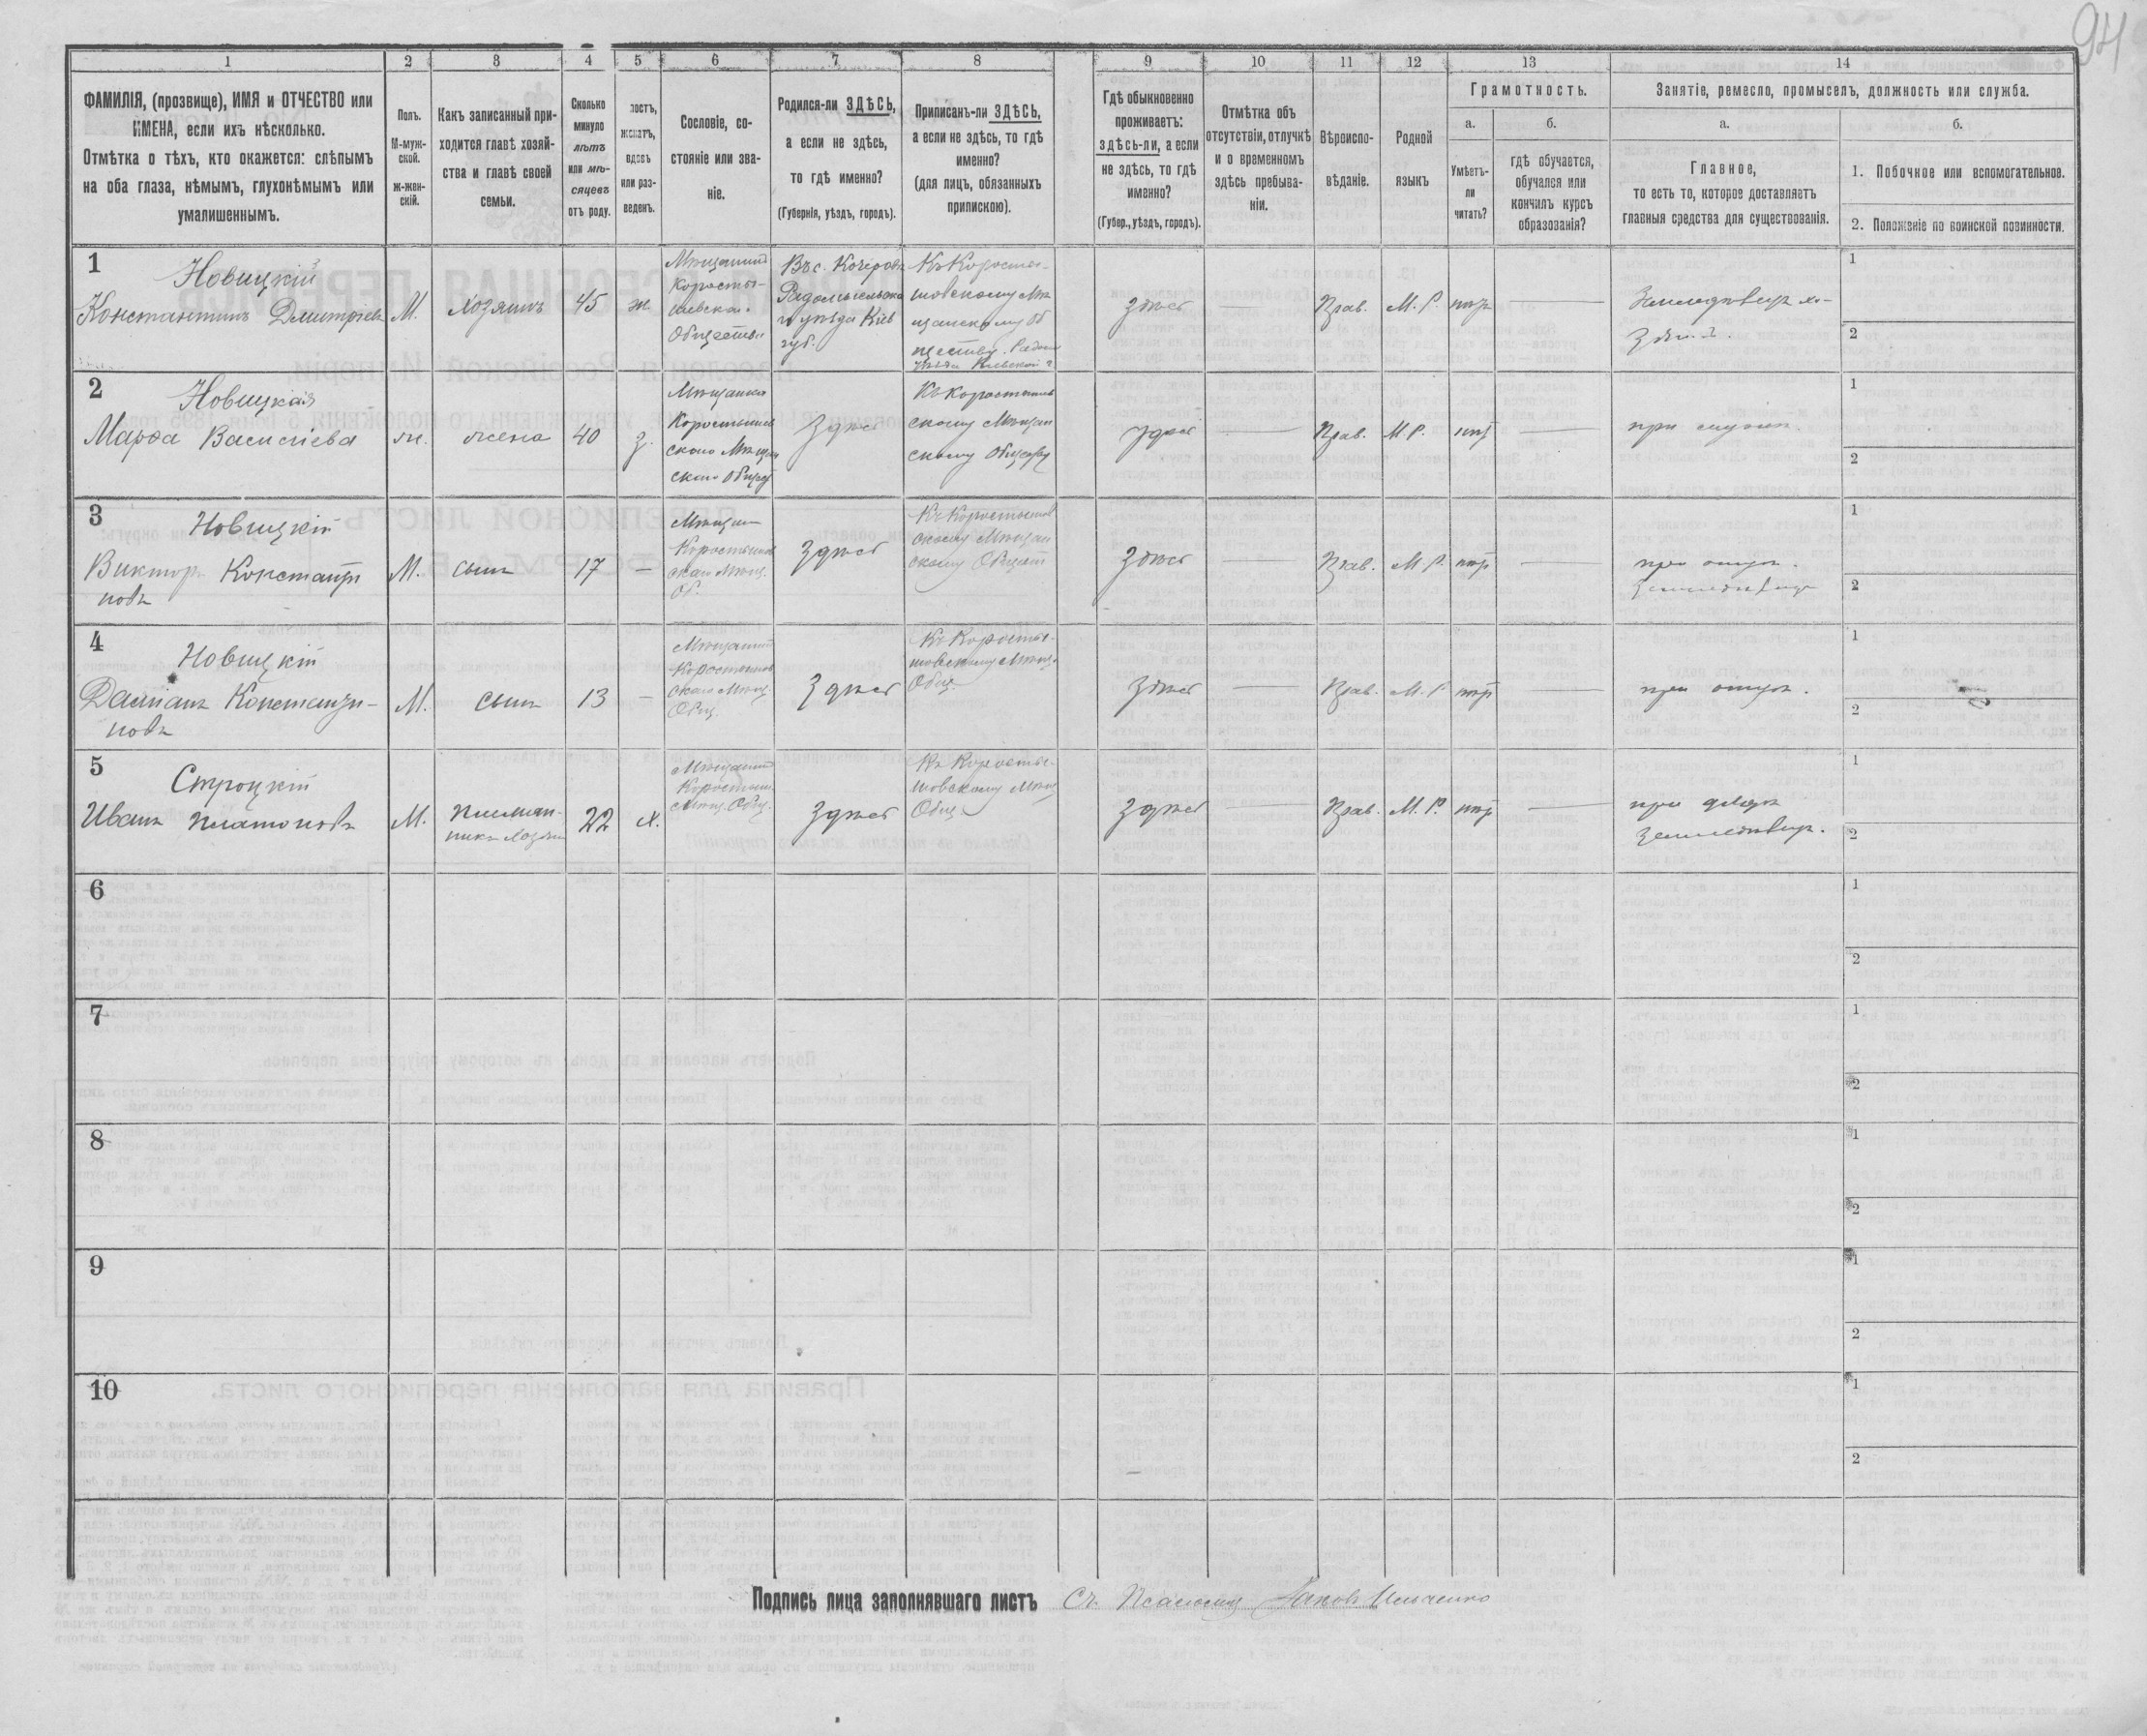 94
1 2 3 4 5 6 7 8 9 10 11 12 13 14
ФАМИЛІЯ, (прозвище), ИМЯ и ОТЧЕСТВО или
ИМЕНА, если ихъ нѣсколько.
Отмѣтка о тѣхъ, кто окажется: слѣпымъ
на оба глаза, нѣмымъ, глухонѣмымъ или
умалишеннымъ.
Полъ.
М-муж-
ской.
ж-жен-
скій.
Какъ записанный при-
ходится главѣ хозяй-
ства и главѣ своей
семьи.
Сколько
минуло
лѣтъ
или мѣ-
сяцевъ
отъ роду.
лостъ,
женатъ,
вдовъ
или раз-
веденъ.
Сословіе, со-
стояніе или зва-
ніе.
Родился-ли ЗДѢСЬ,
а если не здѣсь,
то гдѣ именно?
(Губернія, уѣздъ, городъ).
Приписанъ-ли ЗДѢСЬ,
а если не здѣсь, то гдѣ
именно?
(для лицъ, обязанныхъ
припискою).
Гдѣ обыкновенно
проживаетъ:
здѣсь-ли, а если
не здѣсь, то гдѣ
именно?
(Губер., уѣздъ, городъ).
Отмѣтка объ
отсутствіи, отлучкѣ
и о временномъ
здѣсь пребыва-
ніи.
Вѣроиспо-
вѣданіе.
Родной
языкъ
Грамотность.
а.
Умѣетъ-
ли
читать?
б.
гдѣ обучается,
обучался или
кончилъ курсъ
образованія?
Занятіе, ремесло, промыселъ, должность или служба.
а.
Главное,
то есть то, которое доставляетъ
главныя средства для существованія.
б.
1. Побочное или вспомогательное.
2. Положеніе по воинской повинности.
1
Новицкій
Константинъ Дмитріевъ
М.
хозяинъ
45
ж.
Мѣщанинъ
Коросты-
шевска.
Обществ
Въ с. Кочеровѣ
Радомысльска
го уѣзда Кіев
губ.
Къ Косты-
шовскому Мѣ
щанскому Об
ществу. Радом
уѣзда Кіевской г
здѣсь
—
Прав.
М. Р.
нѣтъ
—
1
2
2
Новицкая
Марѳа Василіева
ж.
жена
40
з.
Мѣщанка
Коростышев
скаго Мѣщан
скаго Общест
Здѣсь
Къ Коростышев
скому Мѣщан
скому Обществу
здѣсь
—
Прав.
М Р.
нѣтъ
—
при мужѣ.
1
2
3
Новицкій
Викторъ Константи
новъ
М.
сынъ
17
—
Мѣщан
Коростышев
скаго Мѣщ.
Об.
Здѣсь
Къ Коростышов
скому Мѣщан
скому Общест
Здѣсь
—
Прав.
М. Р.
нѣтъ
—
при отцѣ.
1
2
4
Новицкій
Даміанъ Константи-
новъ
М.
сынъ
13
—
Мѣщанинъ
Коростышев
скаго Мѣщ.
Общ.
Здѣсь
Къ Коросты-
шовскому Мѣщ.
Общ.
Здѣсь
—
Прав.
М. Р.
нѣтъ
—
при отцѣ.
1
2
5
Строцкій
Иванъ Платоновъ
М.
Племян-
никъ хозяина
22
х.
Мѣщанинъ
Коростыш.
Мѣщ. Общ.
Здѣсь
Къ Коросты-
шовскому Мѣщ
Общ.
Здѣсь
—
Прав.
М. Р.
нѣтъ
—
при дядѣ
1
2
6
1
2
7
1
2
8
1
2
9
1
2
10
1
2
Подпись лица заполнявшаго листъ Яковъ Ильченко